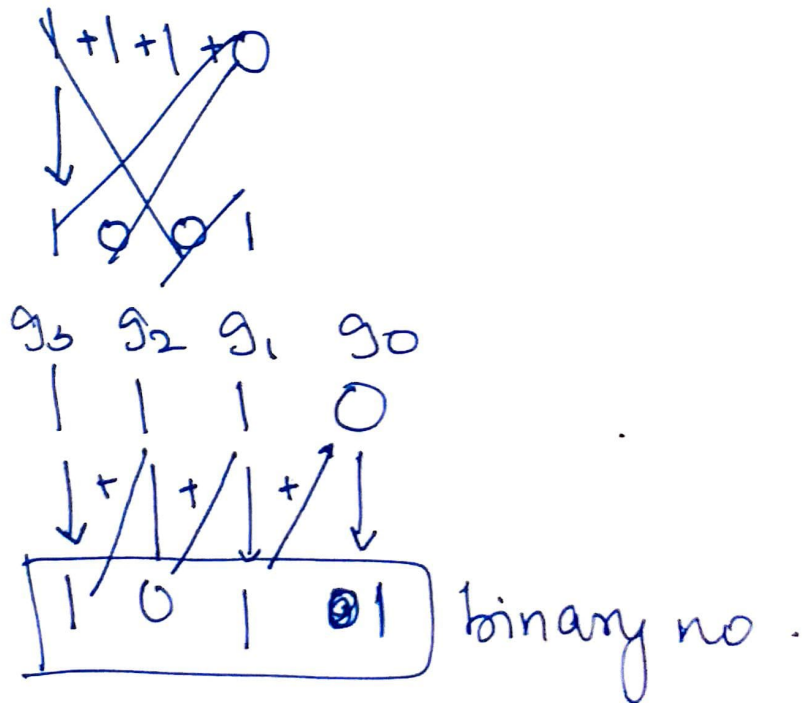 1 + 1 + 1 + 0
1 0 0 1
g3 g2 g1 g0
1 1 1 0
+ + +
1 0 1 1 binary no.